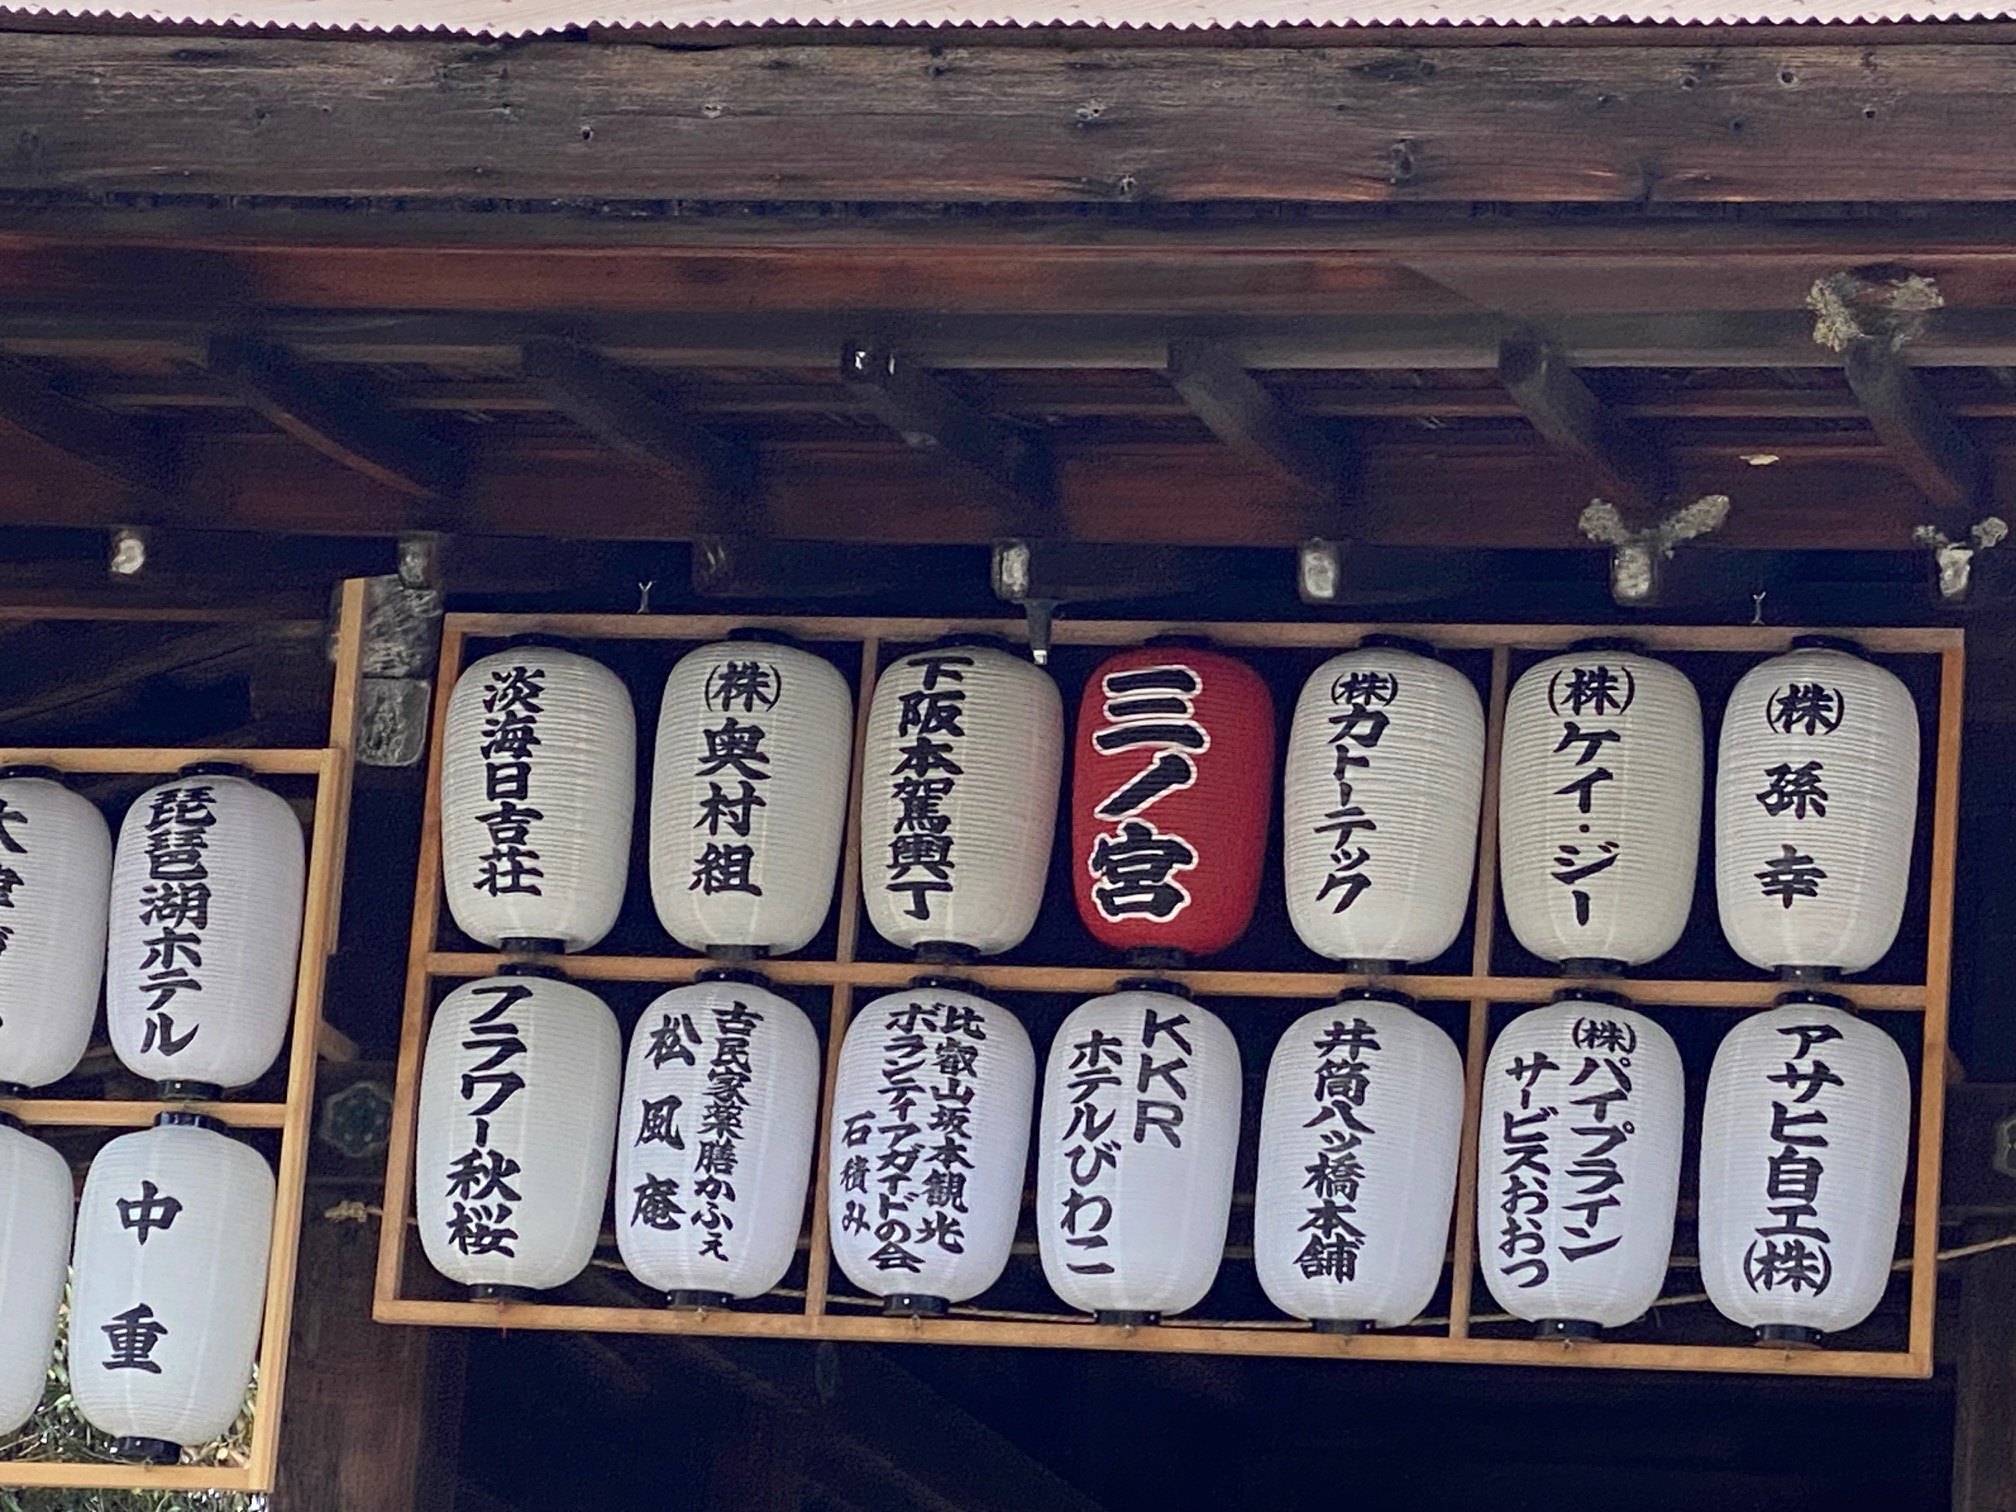 淡海日吉荘
(株)奥村組
下阪本駕輿丁
三ノ宮
(株)カトーテック
(株)ケイ・ジー
(株)孫幸
フラワー秋桜
古民家薬膳かふぇ
松風庵
比叡山坂本観光
ボランティアガイドの会
石積み
KKR
ホテルびわこ
井筒八ッ橋本舗
(株)パイプライン
サービスおおつ
アサヒ自工(株)
琵琶湖ホテル
中重